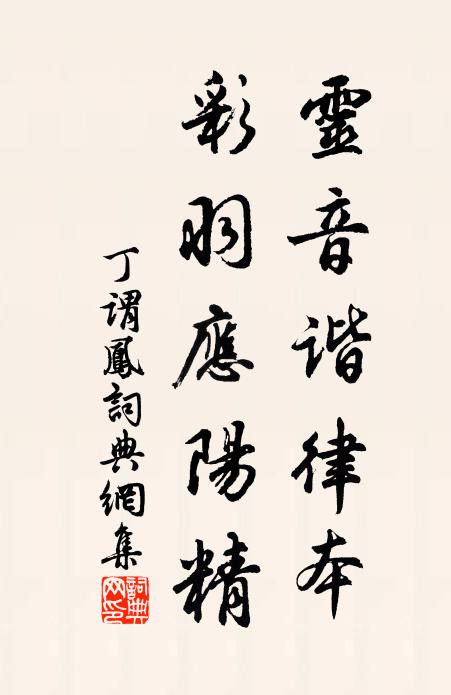 靈音諧律本
彩羽應陽精
丁謂鳳詞典網集
詞典網印